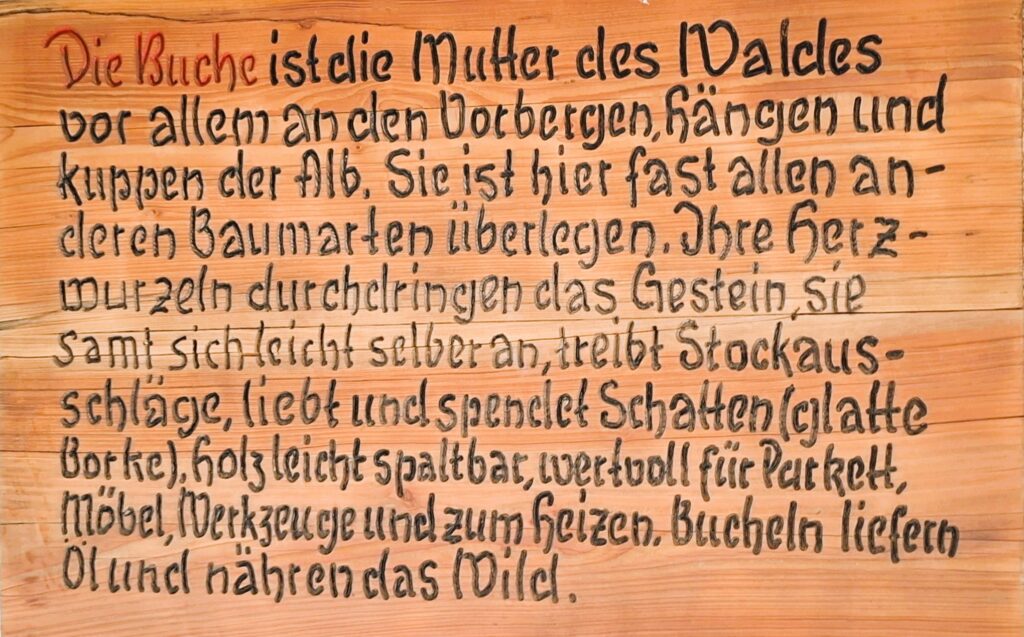 Die Buche ist die Mutter des Waldes
vor allem an den Vorbergen, Hängen und
kuppen der Alb. Sie ist hier fast allen an-
deren Baumarten überlegen. Ihre Herz-
wurzeln durchdringen das Gestein, sie
samt sich leicht selber an, treibt Stockaus-
schläge, liebt und spendet Schatten (glatte
Borke). Holz leicht spaltbar, wertvoll für Parkett,
Möbel, Werkzeuge und zum Heizen. Bucheln liefern
Öl und nähren das Wild.